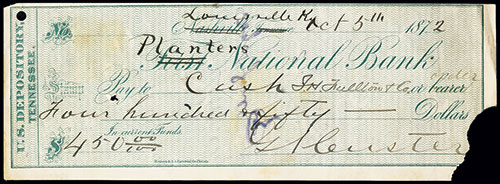 Louisville Ky
Nashville, Oct 5th 1872
U.S. DEPOSITORY, TENNESSEE.
No.
Planters
First National Bank
Pay to Cash or bearer
order
Four hundred & fifty — Dollars
In current Funds.
$450 00/100